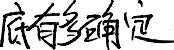 底有多确定